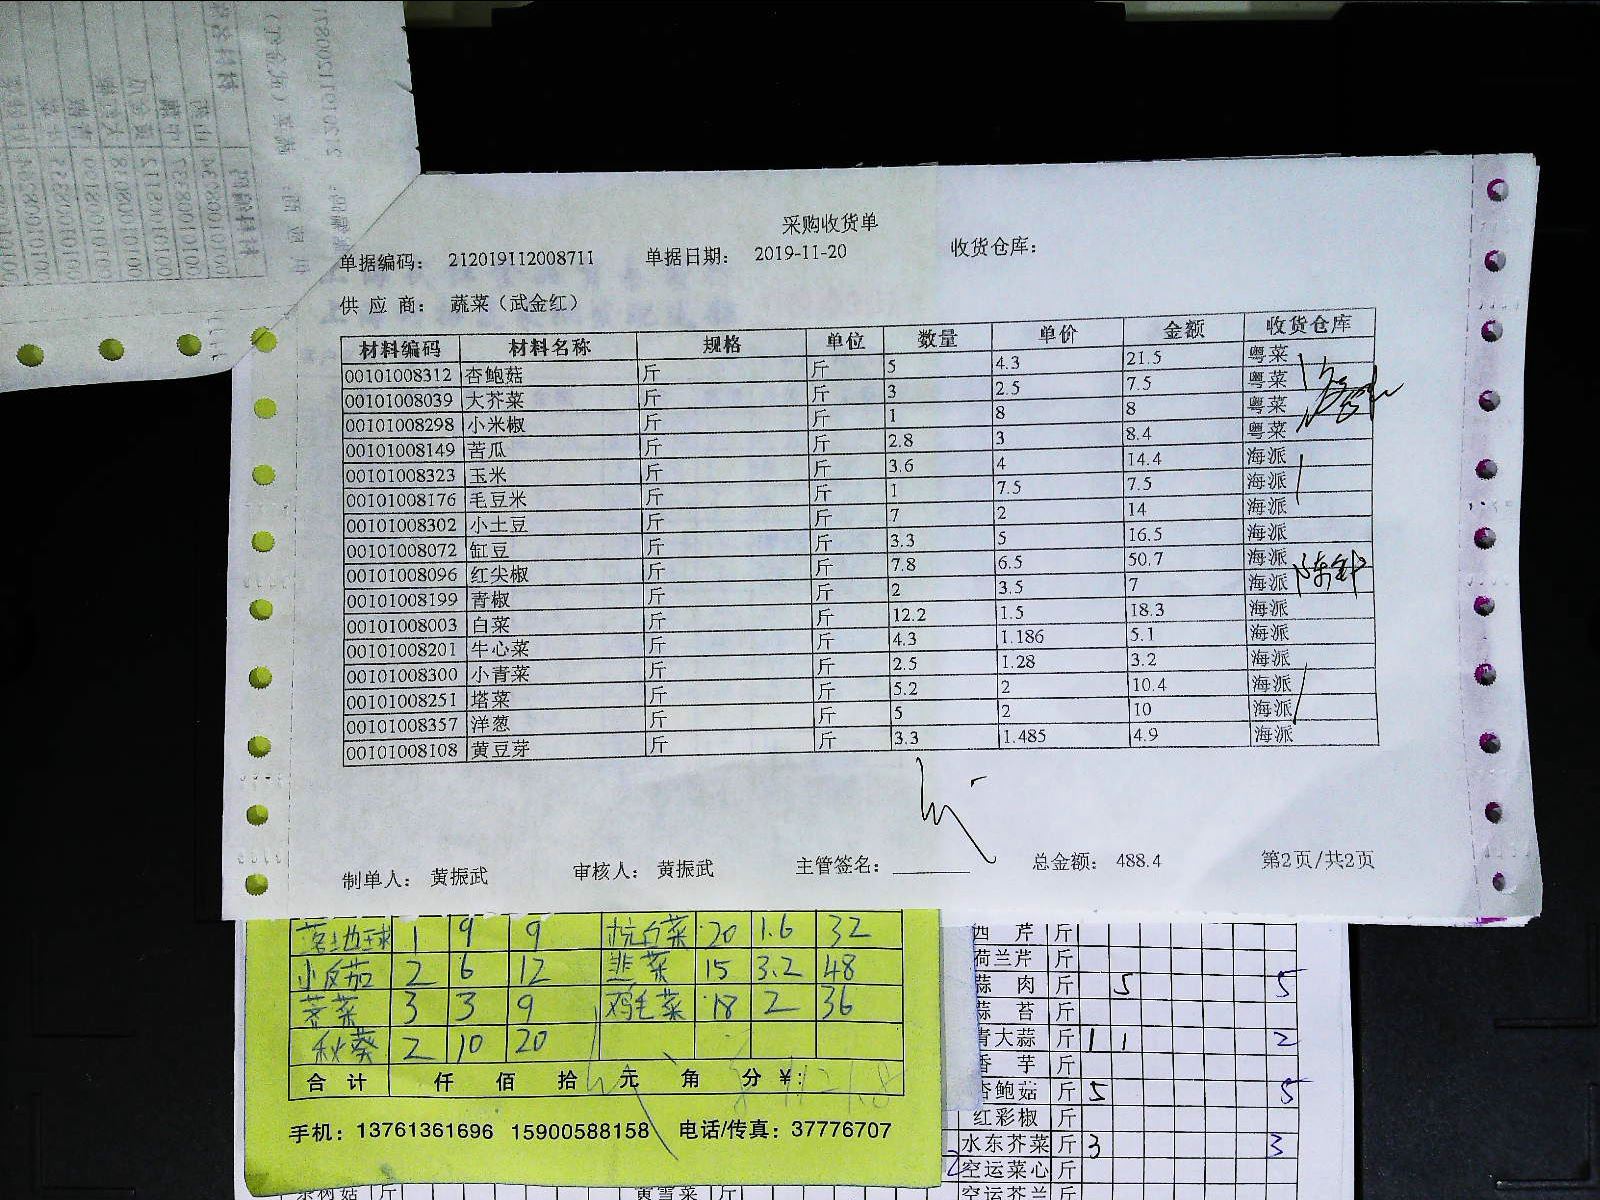 采购收货单
单据编码： 212019112008711 单据日期： 2019-11-20 收货仓库：
供 应 商： 蔬菜（武金红）
材料编码 材料名称 规格 单位 数量 单价 金额 收货仓库
00101008312 杏鲍菇 斤 斤 5 4.3 21.5 粤菜
00101008039 大芥菜 斤 斤 3 2.5 7.5 粤菜
00101008298 小米椒 斤 斤 1 8 8 粤菜
00101008149 苦瓜 斤 斤 2.8 3 8.4 粤菜
00101008323 玉米 斤 斤 3.6 4 14.4 海派
00101008176 毛豆米 斤 斤 1 7.5 7.5 海派
00101008302 小土豆 斤 斤 7 2 14 海派
00101008072 缸豆 斤 斤 3.3 5 16.5 海派
00101008096 红尖椒 斤 斤 7.8 6.5 50.7 海派
00101008199 青椒 斤 斤 2 3.5 7 海派
00101008003 白菜 斤 斤 12.2 1.5 18.3 海派
00101008201 牛心菜 斤 斤 4.3 1.186 5.1 海派
00101008300 小青菜 斤 斤 2.5 1.28 3.2 海派
00101008251 塔菜 斤 斤 5.2 2 10.4 海派
00101008357 洋葱 斤 斤 5 2 10 海派
00101008108 黄豆芽 斤 斤 3.3 1.485 4.9 海派
制单人： 黄振武 审核人： 黄振武 主管签名： 总金额： 488.4 第2页/共2页
落地球 1 9 9 杭白菜 20 1.6 32
小皮茄 2 6 12 韭菜 15 3.2 48
荠菜 3 3 9 鸡毛菜 18 2 36
秋葵 2 10 20
合 计 仟 佰 拾 元 角 分 ¥:
手机：13761361696 15900588158 电话/传真：37776707
西 芹 斤
荷兰芹 斤
蒜 肉 斤 5 5
蒜 苔 斤
青大蒜 斤 1 1 2
香 芋 斤
杏鲍菇 斤 5 5
红彩椒 斤
水东芥菜 斤 3 3
空运菜心 斤
空运芥兰 斤
茶树菇 斤 黄雪菜 斤